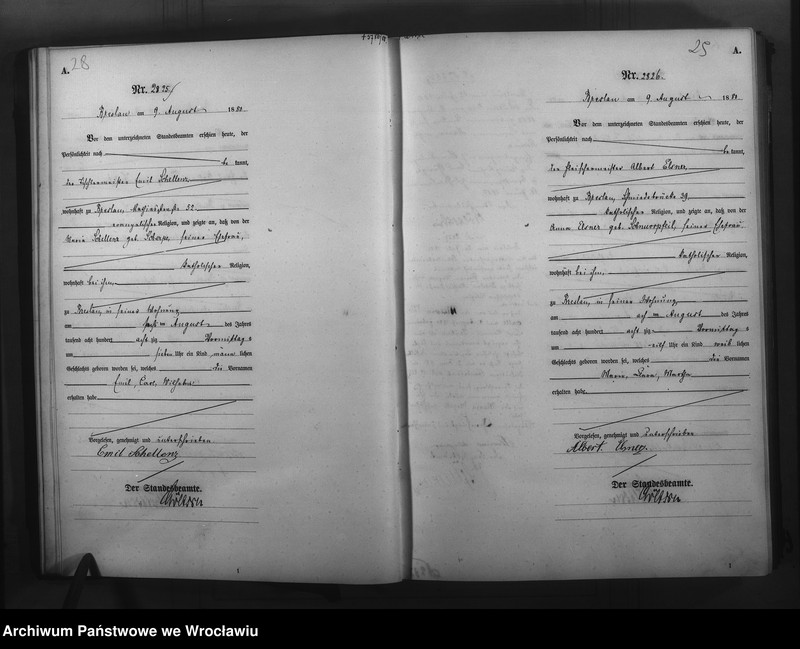 A. 28
Nr. 2825
Breslau am 9 August 1880
Vor dem unterzeichneten Standesbeamten erschien heute, der
Persönlichkeit nach
be kannt,
der Tischlermeister Emil Schellenz
wohnhaft zu Breslau 32
evangelischer Religion, und zeigte an, daß von der
Maria Schellenz geb. seiner Ehefrau,
katholischer Religion,
wohnhaft bei ihm
zu Breslau, in seiner Wohnung
am ten August des Jahres
tausend acht hundert acht zig Vormittag s
um sieben Uhr ein Kind männ lichen
Geschlechts geboren worden sei, welches die Vornamen
Emil, Carl, Wilhelm
erhalten habe
Vorgelesen, genehmigt und unterschrieben
Emil Schellenz
Der Standesbeamte.
1
25 A.
Nr. 2826
Breslau am 9 August 1880
Vor dem unterzeichneten Standesbeamten erschien heute, der
Persönlichkeit nach
be kannt,
der Fleischermeister Albert Elsner
wohnhaft zu Breslau, Schmiedebrücke 39
katholischer Religion, und zeigte an, daß von der
Anna Elsner geb. Schnurpfeil, seiner Ehefrau
katholischer Religion,
wohnhaft bei ihm
zu Breslau, in seiner Wohnung
am ten August des Jahres
tausend acht hundert acht zig Vormittag s
um elf Uhr ein Kind weib lichen
Geschlechts geboren worden sei, welches die Vornamen
Maria, Martha
erhalten habe
Vorgelesen, genehmigt und unterschrieben
Albert Elsner.
Der Standesbeamte.
1
Archiwum Państwowe we Wrocławiu